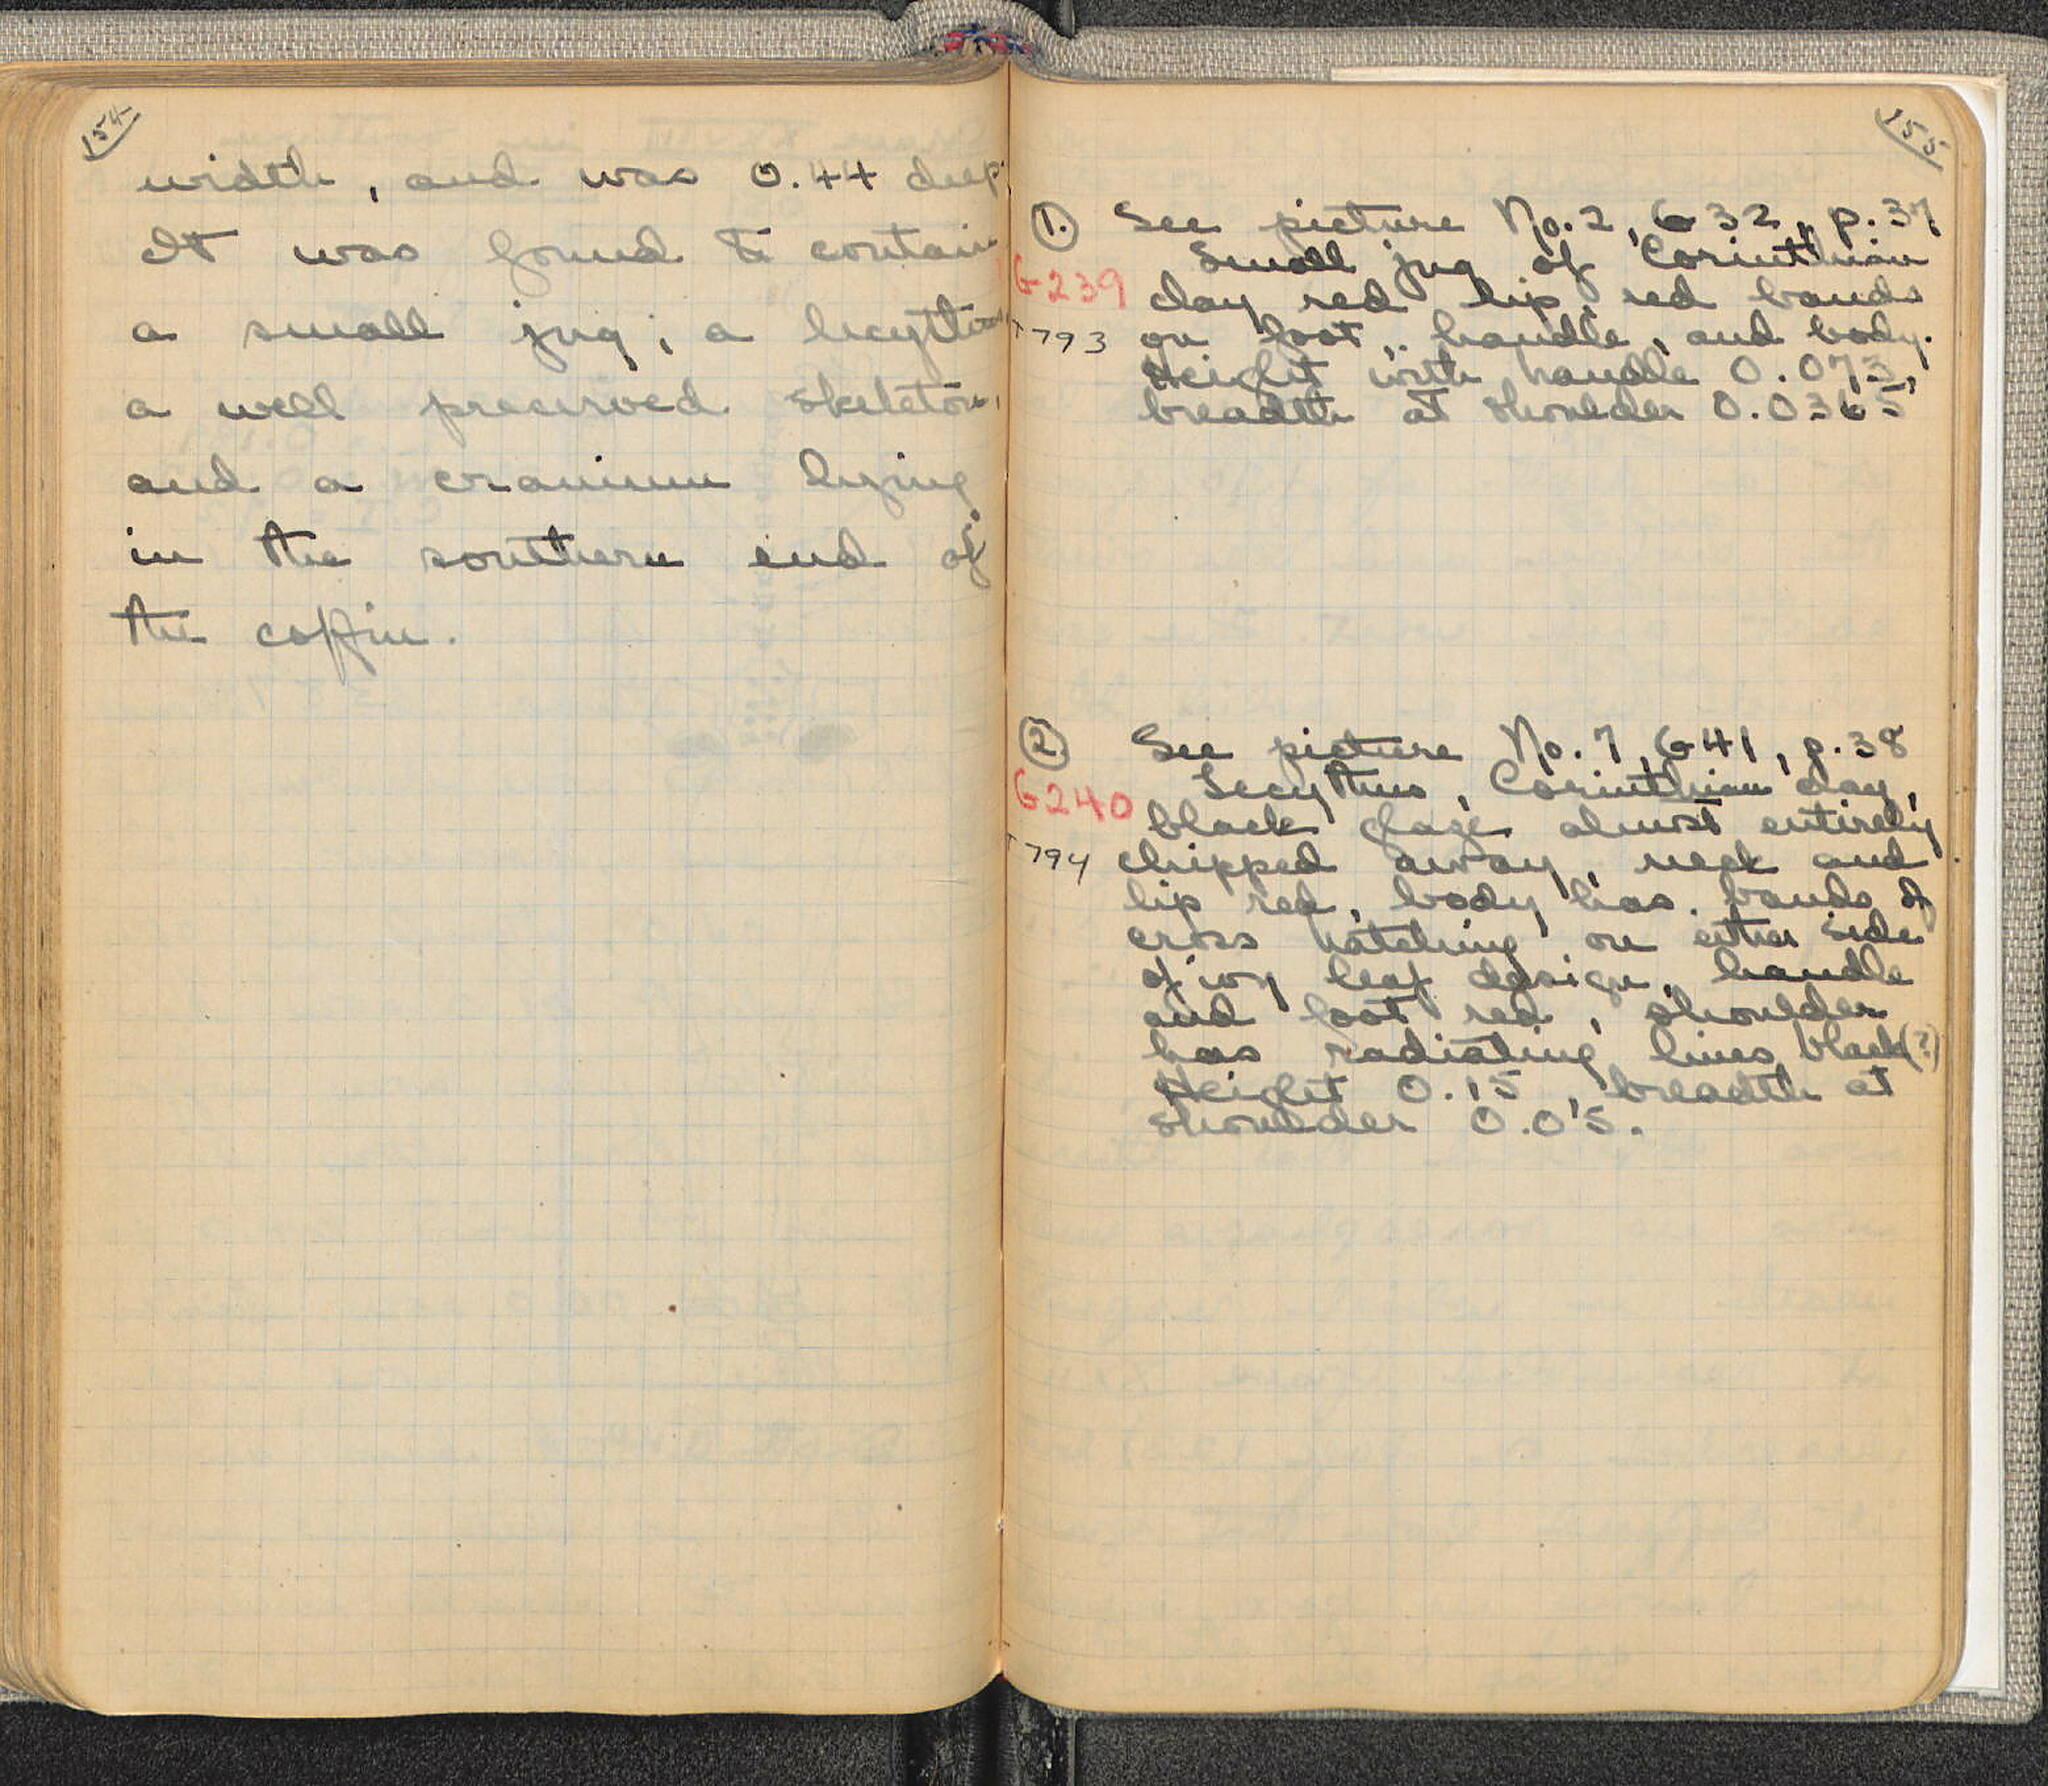 154
width, and was 0.44 deep.
It was found to contain
a small jug, a lecythus
a well preserved skeleton,
and a cranium lying
in the southern end of
the coffin.
155
1. See picture No. 2, G 32, p. 37,
Small jug of Corinthian
G 239 clay red lip, red bands
T 793 on foot, handle, and body.
Height with handle 0.073,
breadth at shoulder 0.0365
2. See picture No. 7, G 41, p. 38
Lecythus, Corinthian clay,
G 240 black glaze almost entirely
T 794 chipped away, neck and
lip red, body has bands of
cross hatching on either side
of ivy leaf design, handle
and foot red, shoulder
has radiating lines black (?)
Height 0.15, breadth at
shoulder 0.05.